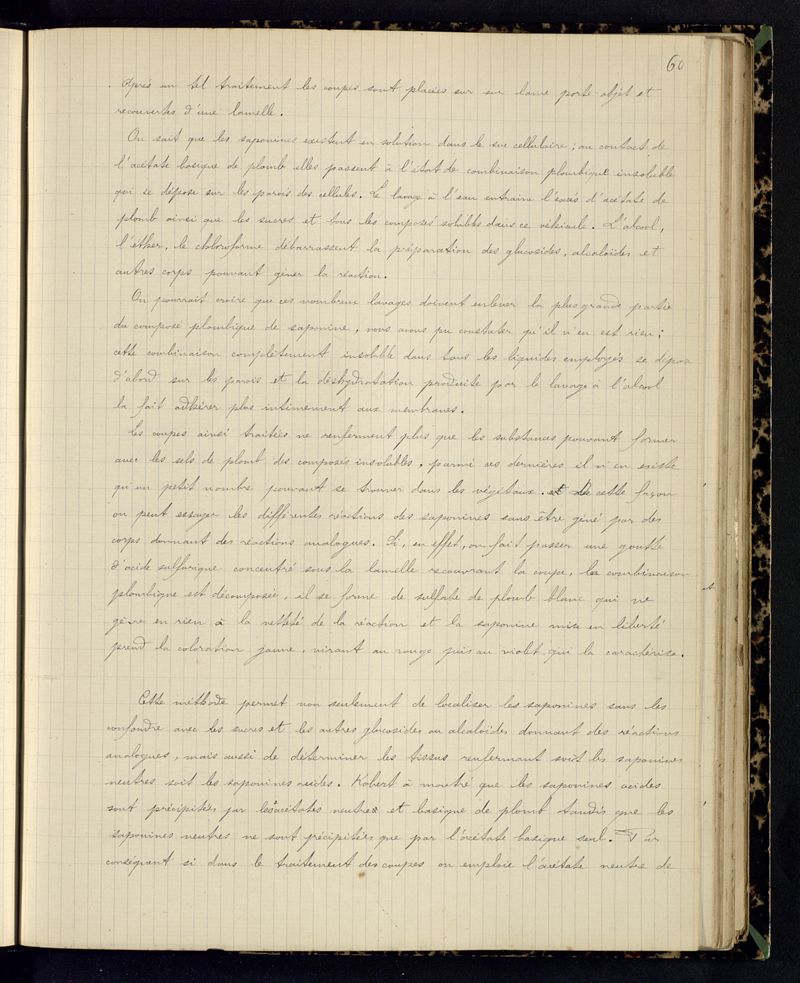 60
Après un tel traitement les coupes sont placées sur une lame porte objet et
recouvertes d'une lamelle.
On sait que les saponines existent en solution dans le suc cellulaire; au contact de
l'acétate basique de plomb elles passent à l'état de combinaison plombique insoluble
qui se dépose sur les parois des cellules. Le lavage à l'eau entraine l'excès d'acétate de
plomb ainsi que les sucres et tous les composés solubles dans ce véhicule. L'alcool,
l'éther, le chloroforme débarrassent la préparation des glucosides, alcaloïdes et
autres corps pouvant gêner la réaction.
On pourrait croire que ces nombreux lavages doivent enlever la plus grande partie
du composé plombique de saponine, nous avons pu constater qu'il n'en est rien;
cette combinaison complètement insoluble dans tous les liquides employés se dépose
d'abord sur les parois et la déshydratation produite par le lavage à l'alcool
la fait adhérer plus intimement aux membranes.
Les coupes ainsi traitées ne renferment plus que les substances pouvant former
avec les sels de plomb des composés insolubles. parmi ces dernières il n'en existe
qu'un petit nombre pouvant se trouver dans les végétaux. De cette façon
on peut essayer les différentes réactions des saponines sans être gêné par des
corps donnant des réactions analogues. Si, en effet, on fait passer une goutte
d'acide sulfurique concentré sous la lamelle recouvrant la coupe, la combinaison
plombique est décomposée, il se forme de sulfate de plomb blanc qui ne
gêne en rien à la netteté de la réaction et la saponine mise en liberté
prend la coloration jaune, virant au rouge puis au violet qui la caractérise.
Cette méthode permet non seulement de localiser les saponines sans les
confondre avec les sucres et les autres glucosides ou alcaloïdes donnant des réactions
analogues, mais aussi de déterminer les tissus renfermant soit les saponines
neutres soit les saponines acides. Kobert à montré que les saponines acides
sont précipitées par les acétates neutre et basique de plomb tandis que les
saponines neutres ne sont précipitées que par l'acétate basique seul. Par
conséquent si dans le traitement des coupes on emploie l'acétate neutre de